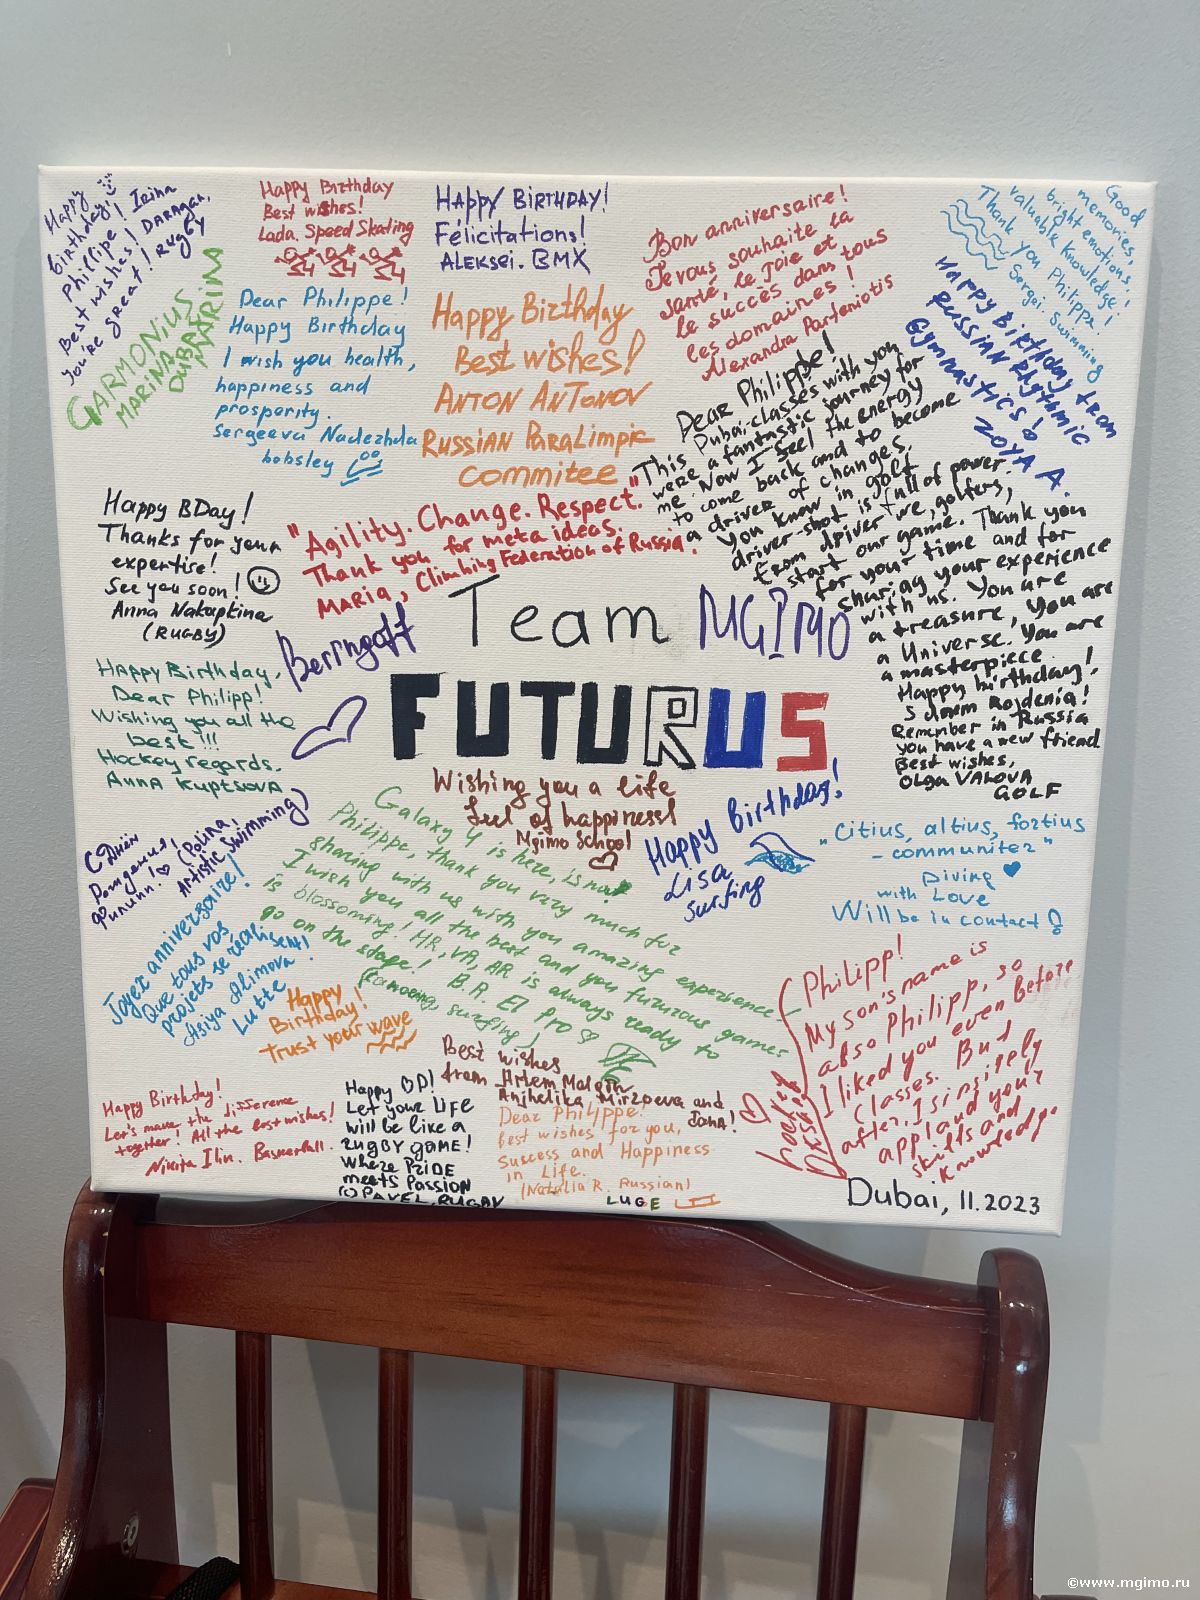 Happy
birthday,
Phillipe! Irina
Best wishes! DARAGAN,
You're great! RUGBY
GARMONIUS
MARINA
DUBAI
MARINA
Happy Birthday
Best wishes!
Lada. Speed Skating
HAPPY BIRTHDAY!
Félicitations!
ALEKSEi. BMX
Bon anniversaire!
Je vous souhaite la
santé, le joie et
le succès dans tous
les domaines!
Alexandra Parteniotis
Good
memories,
bright emotions,
valuable knowledge!
Thank you Philippe!
Sergei. Swimming
Dear Philippe!
Happy Birthday
I wish you health,
happiness and
prosperity.
Sergeeva Nadezhda
bobsley
Happy Birthday
Best wishes!
ANTON ANTONOV
RUSSIAN PARALIMPIC
COMMITEE
HAPPY BIRTHDAY from
RUSSIAN RHYTHMIC
GYMNASTICS!
ZOYA A.
Dear Philippe!
This Dubai-classes with you
were a fantastic journey for
me. Now I feel the energy
to come back and to become
a driver of changes.
You know in golf
driver-shot is full of power.
From driver we, golfers,
start our game. Thank you
for your time and for
sharing your experience
with us. You are
a treasure, you are
a Universe. You are
a masterpiece.
Happy birthday!
S dnem Rojdenia!
Remember in Russia
you have a new friend
Best wishes,
OLGA VALOVA
GOLF
Happy BDay!
Thanks for your
expertise!
See you soon!
Anna Nakapkina
(RUGBY)
"Agility. Change. Respect."
Thank you for meta ideas.
MARIA, Climbing Federation of Russia.
Beringoff
Team MGIMO
FUTURUS
Happy Birthday,
Dear Philipp!
Wishing you all the
best!!!
Hockey regards.
Anna Kuptsova
Wishing you a life
full of happiness!
Mgimo School
Happy Birthday!
Lisa
surfing
"Citius, altius, fortius
- communiter"
Diving
with Love
Will be in contact
С Днём
Рождения,
Филипп! (Polina,
Artistic Swimming)
Galaxy 4 is here, is
Philippe, thank you very much for
sharing with us with you amazing experience!
I wish you all the best and you fururous games
is blossoming! HR, VR, AR is always ready to
go on the stage! B.R. El pro
(canoeing, surfing)
Joyex anniversaire!
Que tous vos
projets se réalisent!
Asiya Alimova!
Lutte
Happy
Birthday!
Trust your wave
Philipp!
My son's name is
also Philipp, so
I liked you even before
classes. But
after, I sinsirely
applaud your
skills and
knowledge
hockey
Best wishes
from Artem Malgin
Anjhelika Mirzoeva and
Jana!
Happy Birthday!
Let's make the difference
together! All the best wishes!
Nikita Ilin. Basketball.
Happy BD!
Let your LIFE
will be like a
RUGBY GAME!
Where PRIDE
meets Passion
PAVEL, RUGBY
Dear Philippe!
best wishes for you,
Success and Happiness
in Life.
(Natalia R. Russian)
LUGE
Dubai, 11.2023
©www.mgimo.ru